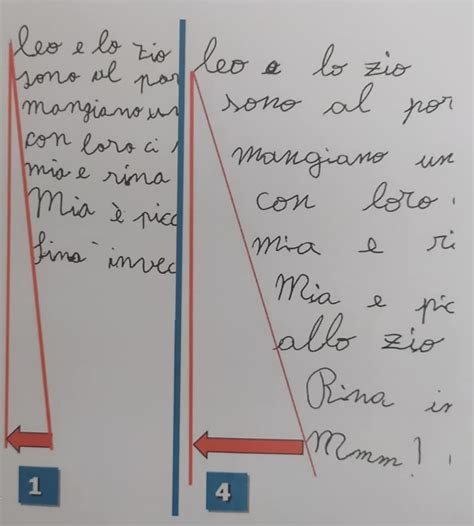 leo e lo zio
sono al por
mangiano un
con loro ci
mia e rima
Mia è picc
fina invec
1
leo e lo zio
sono al por
mangiano un
con loro
mia e ri
Mia e pic
allo zio
Rina in
Mmm!
4